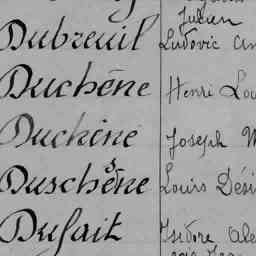 Julien
Dubreuil Ludovic
Duchêne Henri
Duchéné Joseph
Duschêne Louis Dési
Dufait Isidore